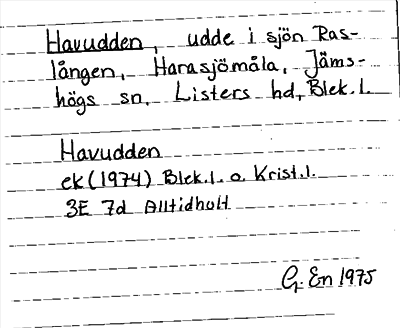 Havudden, udde i sjön Ras-
lången, Harasjömåla, Jäms-
högs sn, Listers hd, Blek. l.
Havudden
ek (1974) Blek. l. o. Krist. l.
3E 7d Alltidhult
G. En 1975